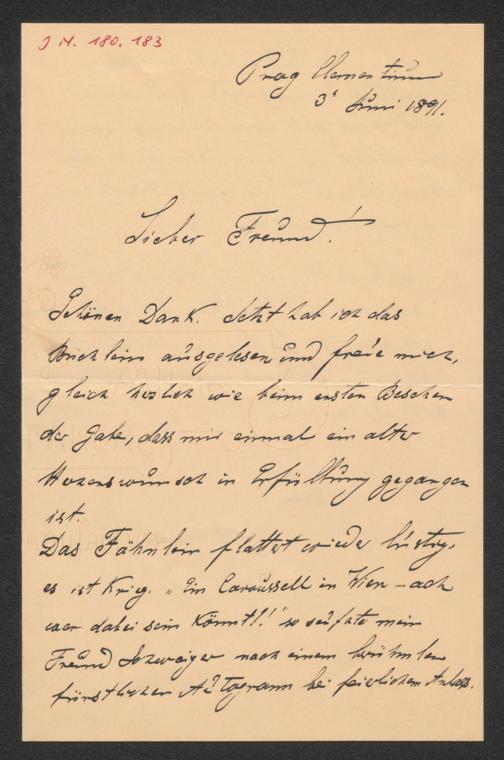 J. N. 180.183
Prag Clementinum
3t Juni 1891.
Lieber Freund!
Schönen Dank. Jetzt hab ich das
Büchlein ausgelesen und freue mich,
gleich herzlich wie beim ersten Besehen
der Gabe, dass mir einmal ein alter
Herzenswunsch in Erfüllung gegangen
ist.
Das Fähnlein flattert wieder lustig,
es ist Krieg. „Ein Caroussell in Wien – ach
wer dabei sein könnt!!" so seufzte mein
Freund nach einem berühmten
fürstlichen Autogramm bei feierlichem Anlass.